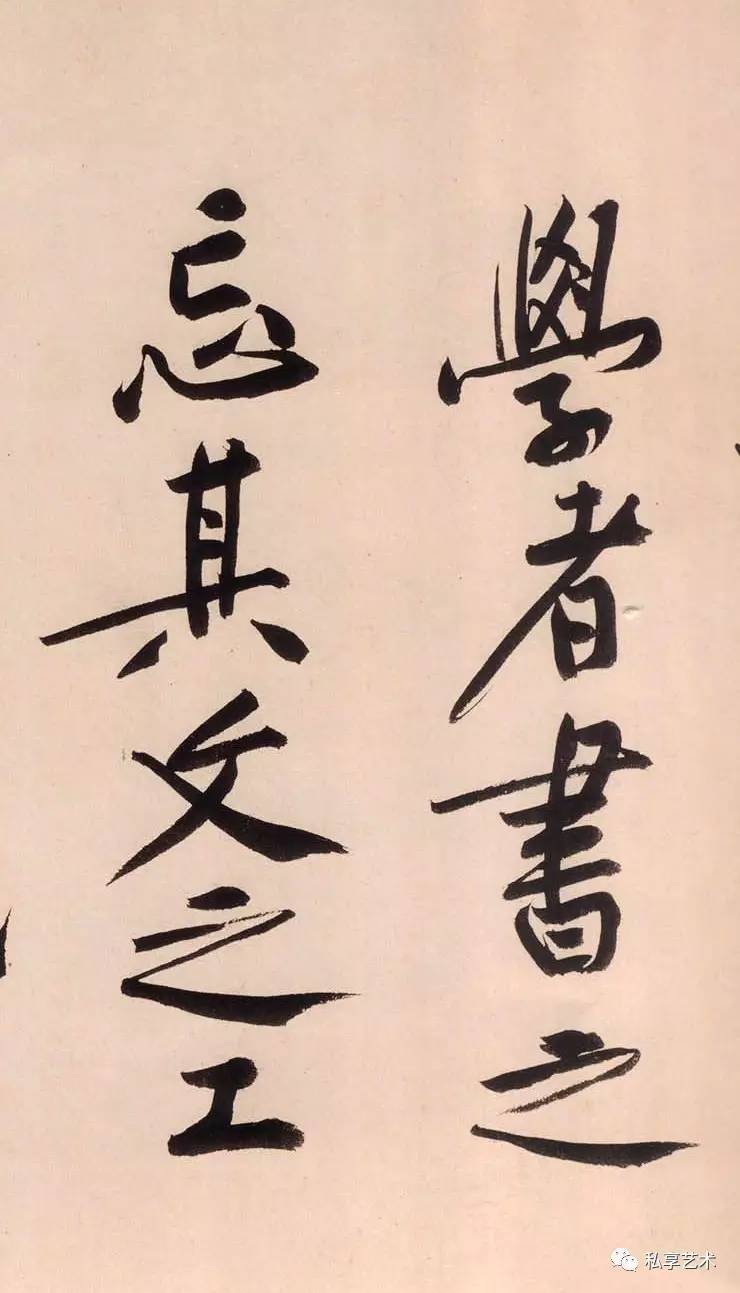 學者書之
忘其文之工
私享艺术